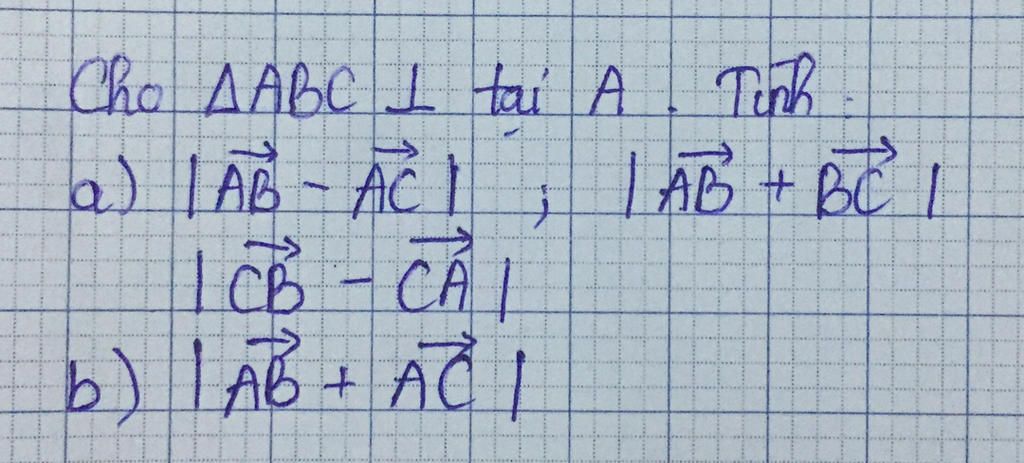 Cho ΔABC ⊥ tại A. Tính:
a) |$\overrightarrow{AB}$ - $\overrightarrow{AC}$| ; |$\overrightarrow{AB}$ + $\overrightarrow{BC}$|
|$\overrightarrow{CB}$ - $\overrightarrow{CA}$|
b) |$\overrightarrow{AB}$ + $\overrightarrow{AC}$|